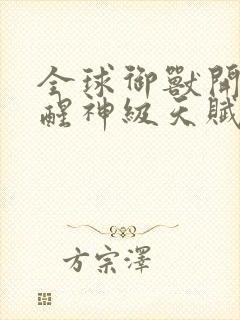 全球御獸開
醒神級天賦
方宗澤